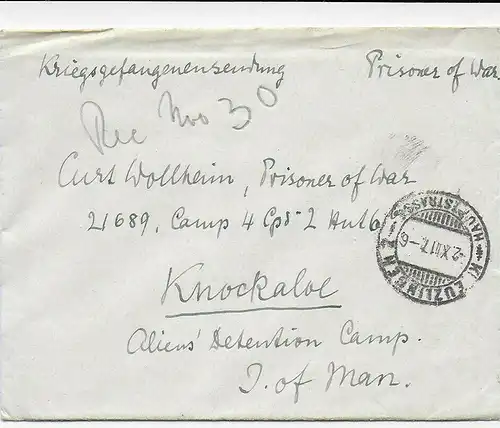 Kriegsgefangenensendung Prisoner of War
Rec Nov 30
Curt Wollheim, Prisoner of War
21689, Camp 4 Cpd- 2 Hut 6
Knockaloe
Aliens' Detention Camp.
I. of Man.
KREUZLINGEN 2
-2.XII.17.-6
HAUPTSTRASSE